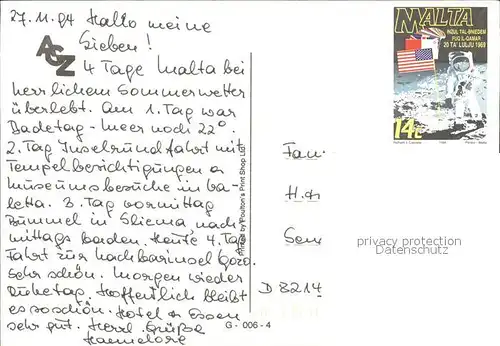 27.11.94 Hallo meine
Lieben!
4 Tage Malta bei
herrlichem Sommerwetter
überlebt. Am 1. Tag war
Badetag - Meer noch 22°
2. Tag Inselrundfahrt mit
Tempelbesichtigungen
Museumsbesuche in Va-
letta. 3. Tag vormittag
Bummel in Sliema, nach-
mittags baden. Heute, 4. Tag
Fahrt zur Nachbarinsel Gozo.
Sehr schön. Morgen wieder
Ruhetag. Hoffentlich bleibt
es so schön. Hotel u. Essen
sehr gut. Herzl. Grüße
Hannelore
AGZ
Printed by Poulton's Print Shop Ltd
G - 006 - 4
MALTA
INŻUL TAL-BNIEDEM
FUQ IL-QAMAR
20 TA' LULJU 1969
14c
Fam
H.
D 8214
privacy protection
Datenschutz